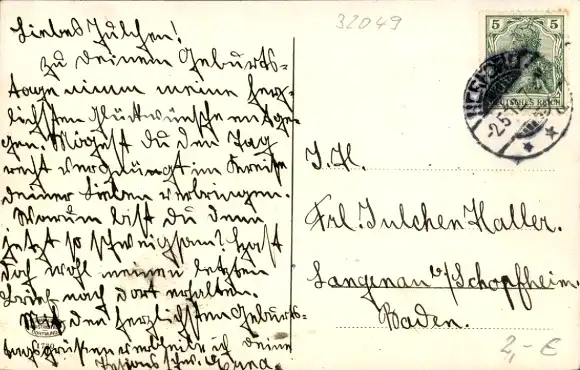 32049
Liebes Julchen!
Zu deinem Geburts-
tage nimm meine herz-
lichsten Glückwünsche entge-
gen. Mögest du den Tag
recht vergnügt im Kreise
deiner Lieben verbringen.
Warum bist du denn
jetzt so schweigsam? Hast
doch wohl meinen letzten
Brief nach dort erhalten.
Mit den herzlichsten Geburts-
tagsgrüßen verbleibe ich deine
5
5
DEUTSCHES REICH
Frl. Julchen Haller.
Langenau b/Schopfheim.
Baden.
2,- €